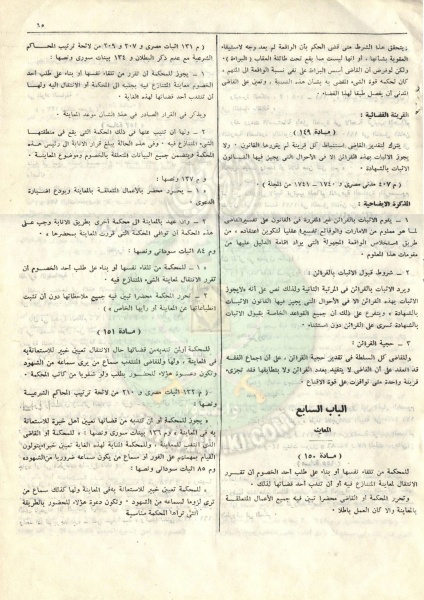 ٦٥
ويتحقق هذا الشرط متى قضى الحكم بأن الواقعة لم يعد وجه لاستيفاء
العقوبة بشأنها ، أو أنها ليست مما يقع تحت طائلة العقاب ( البراءة ) ،
ولكن لو فرض أن القاضي أسس البراءة على نفي نسبة الواقعة الى المتهم ،
كان لحكمه قوة الشيء المقضي به بشأن هذه النسبة ، وتعين على القاضي
المدني أن يفصل طبقا لهذا القضاء .
القرينة القضائية :
( مـادة ١٤٩ )
يترك لتقدير القاضي استنباط كل قرينة لم يقررها القانون ، ولا
يجوز الاثبات بهذه القرائن الا في الأحوال التي يجيز فيها القانون
الاثبات بالشهادة .
( م ٤٠٧ مدني مصري و ١٧٤٠ - ١٧٤١ من المجلة )
المذكرة الايضاحية :
١ - يقوم الاثبات بالقرائن غير المقررة في القانون على تفسير القاضي
لما هو معلوم من الامارات والوقائع تفسيرا عقليا لتكوين اعتقاده ، من
طريق استخلاص الواقعة المجهولة التي يراد اقامة الدليل عليها من
مقدمات هذا المعلوم .
٢ - شروط قبول الاثبات بالقرائن :
ويرد الاثبات بالقرائن في المرتبة الثانية ولذلك نص على أنه « لا يجوز
الاثبات بهذه القرائن الا في الأحوال التي يجيز فيها القانون الاثبات
بالشهادة » ويتفرع على ذلك أن جميع القواعد الخاصة بقبول الاثبات
بالشهادة تسري على القرائن دون استثناء .
٣ - حجية القرائن :
وللقاضي كل السلطة في تقدير حجية القرائن ، على أن اجماع الفقه
قد انعقد على أن القاضي لا يتقيد بعدد القرائن ولا بتطابقها فقد تجزىء
قرينة واحدة متى توافرت على قوة الاقناع .
الباب السابع
المعاينة
( مـادة ١٥٠ )
للمحكمة من تلقاء نفسها أو بناء على طلب أحد الخصوم أن تقرر
الانتقال لمعاينة المتنازع فيه أو أن تندب أحد قضاتها لذلك .
وتحرر المحكمة أو القاضي محضرا تبين فيه جميع الأعمال المتعلقة
بالمعاينة والا كان العمل باطلا .
( م ١٣١ اثبات مصري و ٢٠٧ و ٢٠٩ من لائحة ترتيب المحاكم
الشرعية مع عدم ذكر البطلان و ١٣٤ بينات سوري ونصها :
١ - يجوز للمحكمة أن تقرر من تلقاء نفسها أو بناء على طلب أحد
الخصوم معاينة المتنازع فيه بجلبه الى المحكمة أو الانتقال اليه ولها
أن تنتدب أحد قضاتها لهذه الغاية .
ويذكر في القرار الصادر في هذا الشأن موعد المعاينة .
٢ - ولها أن تنيب عنها في ذلك المحكمة التي يقع في منطقتها
الشيء المتنازع فيه . وفي هذه الحالة يبلغ قرار الانابة الى رئيس هذه
المحكمة ويتضمن جميع البيانات المتعلقة بالخصوم وموضوع المعاينة .
و م ١٣٧ ونصها :
١ - يحرر محضر بالأعمال المتعلقة بالمعاينة ويودع اضبارة
الدعوى .
٢ - وان عهد بالمعاينة الى محكمة أخرى بطريق الانابة وجب على
هذه المحكمة أن توافي المحكمة التي قررت المعاينة بمحضرها » .
و م ٨٤ اثبات سوداني ونصها :
« ١ - للمحكمة من تلقاء نفسها أو بناء على طلب أحد الخصوم أن
تقرر الانتقال لمعاينة الشيء المتنازع فيه .
٢ - تحرر المحكمة محضرا تبين فيه جميع ملاحظاتها دون أن تثبت
انطباعاتها عن المعاينة أو رأيها الخاص » )
( مـادة ١٥١ )
للمحكمة أو لمن تندبه من قضاتها حال الانتقال تعيين خبير للاستعانة به
في المعاينة ، ولها وللقاضي المنتدب سماع من يرى سماعه من الشهود
وتكون دعوة هؤلاء للحضور بطلب ولو شفويا من كاتب المحكمة .
( م ١٣٢ اثبات مصري و ٢١٠ من لائحة ترتيب المحاكم الشرعية
ونصها :
« يجوز للمحكمة أو لمن تندبه من قضاتها تعيين أهل خبرة للاستعانة
به في المعاينة ، و م ١٣٦ بينات سوري ونصها : « للمحكمة أو القاضي
الذي انتدب للمعاينة ، وللمحكمة المنابة لهذه الغاية تعيين خبير أو
القيام بمهامهم على الفور أو سماع من يكون سماعه ضروريا من الشهود »
و م ٨٥ اثبات سوداني ونصها :
« للمحكمة تعيين خبير للاستعانة به في المعاينة ولها كذلك سماع من
ترى لزوما لسماعه من الشهود . وتكون دعوة هؤلاء للحضور بالطريقة
التي تراها المحكمة مناسبة